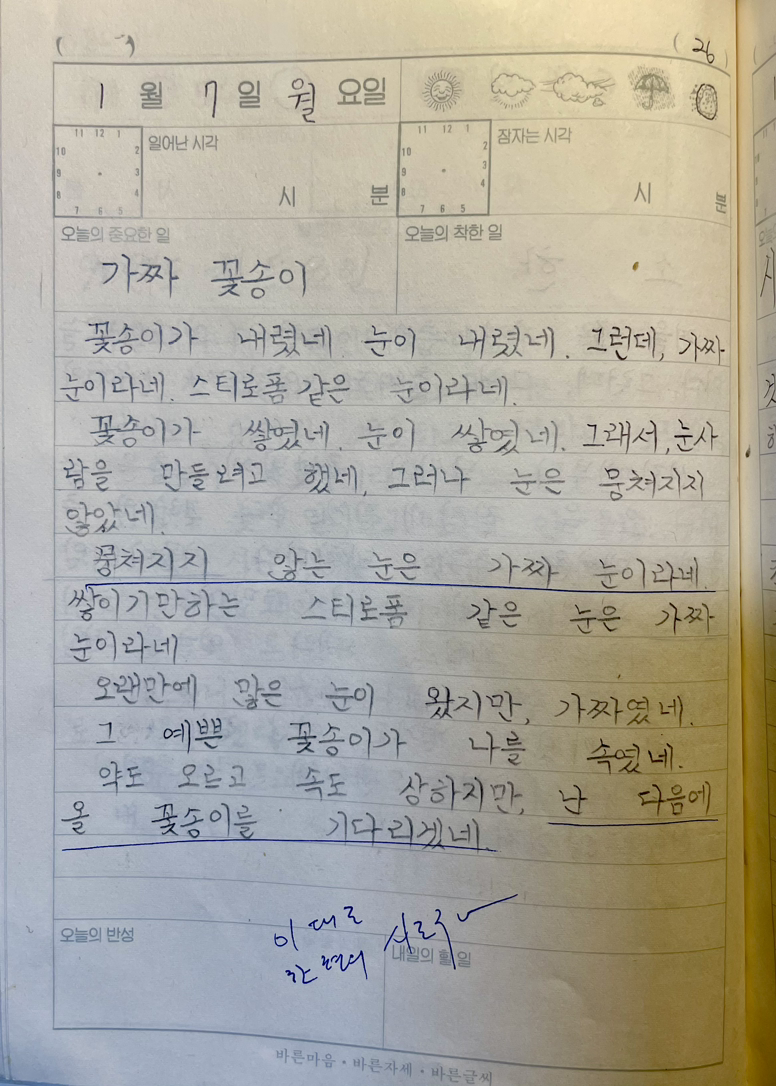 ( ) (26)
1 월 7 일 월 요일
일어난 시각 잠자는 시각
11 12 1 11 12 1
10 2 10 2
9 3 9 3
8 4 8 4
7 6 5 시 분 7 6 5 시 분
오늘의 중요한 일 오늘의 착한 일
가짜 꽃송이
꽃송이가 내렸네. 눈이 내렸네. 그런데, 가짜
눈이라네. 스티로폼 같은 눈이라네.
꽃송이가 쌓였네. 눈이 쌓였네. 그래서, 눈사
람을 만들려고 했네, 그러나 눈은 뭉쳐지지
않았네.
뭉쳐지지 않는 눈은 가짜 눈이라네.
쌓이기만하는 스티로폼 같은 눈은 가짜
눈이라네
오랜만에 많은 눈이 왔지만, 가짜였네.
그 예쁜 꽃송이가 나를 속였네.
약도 오르고 속도 상하지만, 난 다음에
올 꽃송이를 기다리겠네.
오늘의 반성
이대로
한 편의 시로구
내일의 할 일
바른마음 · 바른자세 · 바른글씨